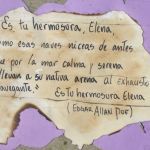 Es tu hermosura, Elena,
como esas naves niceas de antes
que por la mar calma y serena
llevan a su nativa arena al exhausto
navegante."
Es Tu hermosura Elena
(EDGAR ALLAN POE)